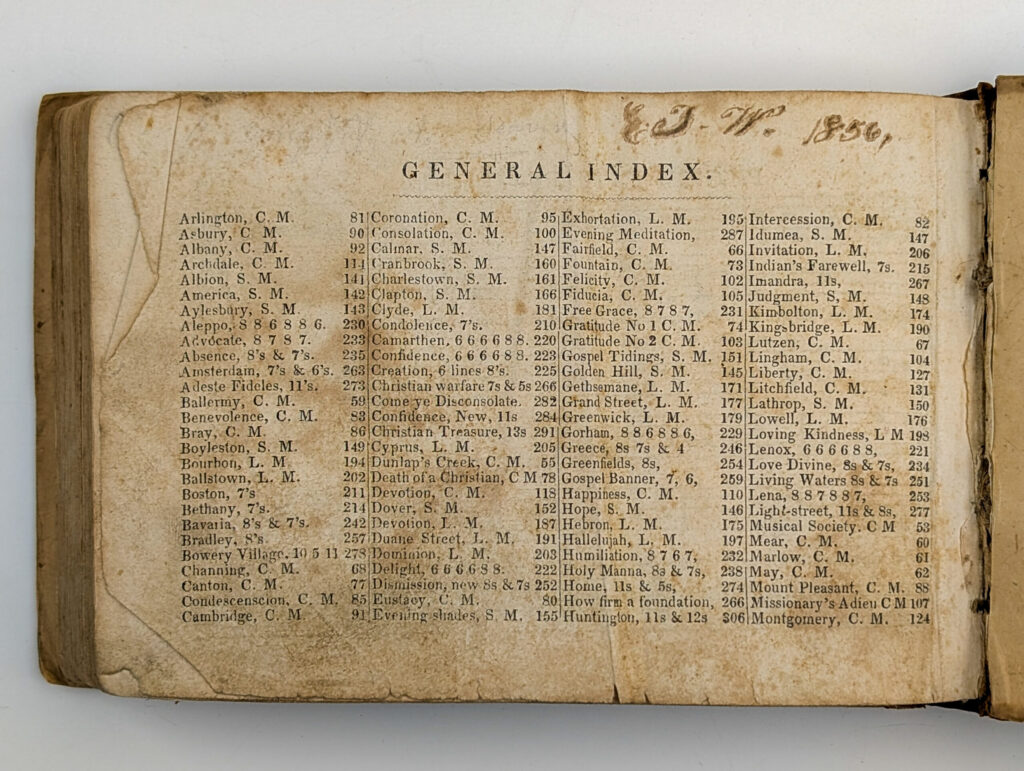 E. J. W. 1856,
GENERAL INDEX.
Arlington, C. M. 81
Asbury, C. M. 90
Albany, C. M. 92
Archdale, C. M. 114
Albion, S. M. 141
America, S. M. 142
Aylesbury, S. M. 143
Aleppo, 8 8 6 8 8 6. 230
Advocate, 8 7 8 7. 233
Absence, 8's & 7's. 235
Amsterdam, 7's & 6's. 263
Adeste Fideles, 11's. 273
Ballermy, C. M. 59
Benevolence, C. M. 83
Bray, C. M. 86
Boyleston, S. M. 149
Bourbon, L. M 194
Ballstown, L. M. 202
Boston, 7's 211
Bethany, 7's. 214
Bavaria, 8's & 7's. 242
Bradley, 8's. 257
Bowery Village. 10 5 11 278
Channing, C. M. 68
Canton, C. M. 77
Condescension, C. M. 85
Cambridge, C. M. 91
Coronation, C. M. 95
Consolation, C. M. 100
Calmar, S. M. 147
Cranbrook, S. M. 160
Charlestown, S. M. 161
Clapton, S. M. 166
Clyde, L. M. 181
Condolence, 7's. 210
Camarthen, 6 6 6 6 8 8. 220
Confidence, 6 6 6 6 8 8. 223
Creation, 6 lines 8's. 225
Christian warfare 7s & 5s 266
Come ye Disconsolate. 282
Confidence, New, 11s 284
Christian Treasure, 13s 291
Cyprus, L. M. 205
Dunlap's Creek, C. M. 55
Death of a Christian, C M 78
Devotion, C. M. 118
Dover, S. M. 152
Devotion, L. M. 187
Duane Street, L. M. 191
Dominion, L. M. 203
Delight, 6 6 6 6 8 8: 222
Dismission, new 8s & 7s 252
Eustacy, C. M. 80
Evening shades, S. M. 155
Exhortation, L. M. 195
Evening Meditation, 287
Fairfield, C. M. 66
Fountain, C. M. 73
Felicity, C. M. 102
Fiducia, C. M. 105
Free Grace, 8 7 8 7, 231
Gratitude No 1 C. M. 74
Gratitude No 2 C. M. 103
Gospel Tidings, S. M. 151
Golden Hill, S. M. 145
Gethsemane, L. M. 171
Grand Street, L. M. 177
Greenwick, L. M. 179
Gorham, 8 8 6 8 8 6, 229
Greece, 8s 7s & 4 246
Greenfields, 8s, 254
Gospel Banner, 7, 6, 259
Happiness, C. M. 110
Hope, S. M. 146
Hebron, L. M. 175
Hallelujah, L. M. 197
Humiliation, 8 7 6 7, 232
Holy Manna, 8s & 7s, 238
Home, 11s & 5s, 274
How firm a foundation, 266
Huntington, 11s & 12s 306
Intercession, C. M. 82
Idumea, S. M. 147
Invitation, L. M. 206
Indian's Farewell, 7s. 215
Imandra, 11s, 267
Judgment, S, M. 148
Kimbolton, L. M. 174
Kingsbridge, L. M. 190
Lutzen, C. M. 67
Lingham, C. M. 104
Liberty, C. M. 127
Litchfield, C. M. 131
Lathrop, S. M. 150
Lowell, L. M. 176
Loving Kindness, L M 198
Lenox, 6 6 6 6 8 8, 221
Love Divine, 8s & 7s, 234
Living Waters 8s & 7s 251
Lena, 8 8 7 8 8 7, 253
Light-street, 11s & 8s, 277
Musical Society. C M 53
Mear, C. M. 60
Marlow, C. M. 61
May, C. M. 62
Mount Pleasant, C. M. 88
Missionary's Adieu C M 107
Montgomery, C. M. 124